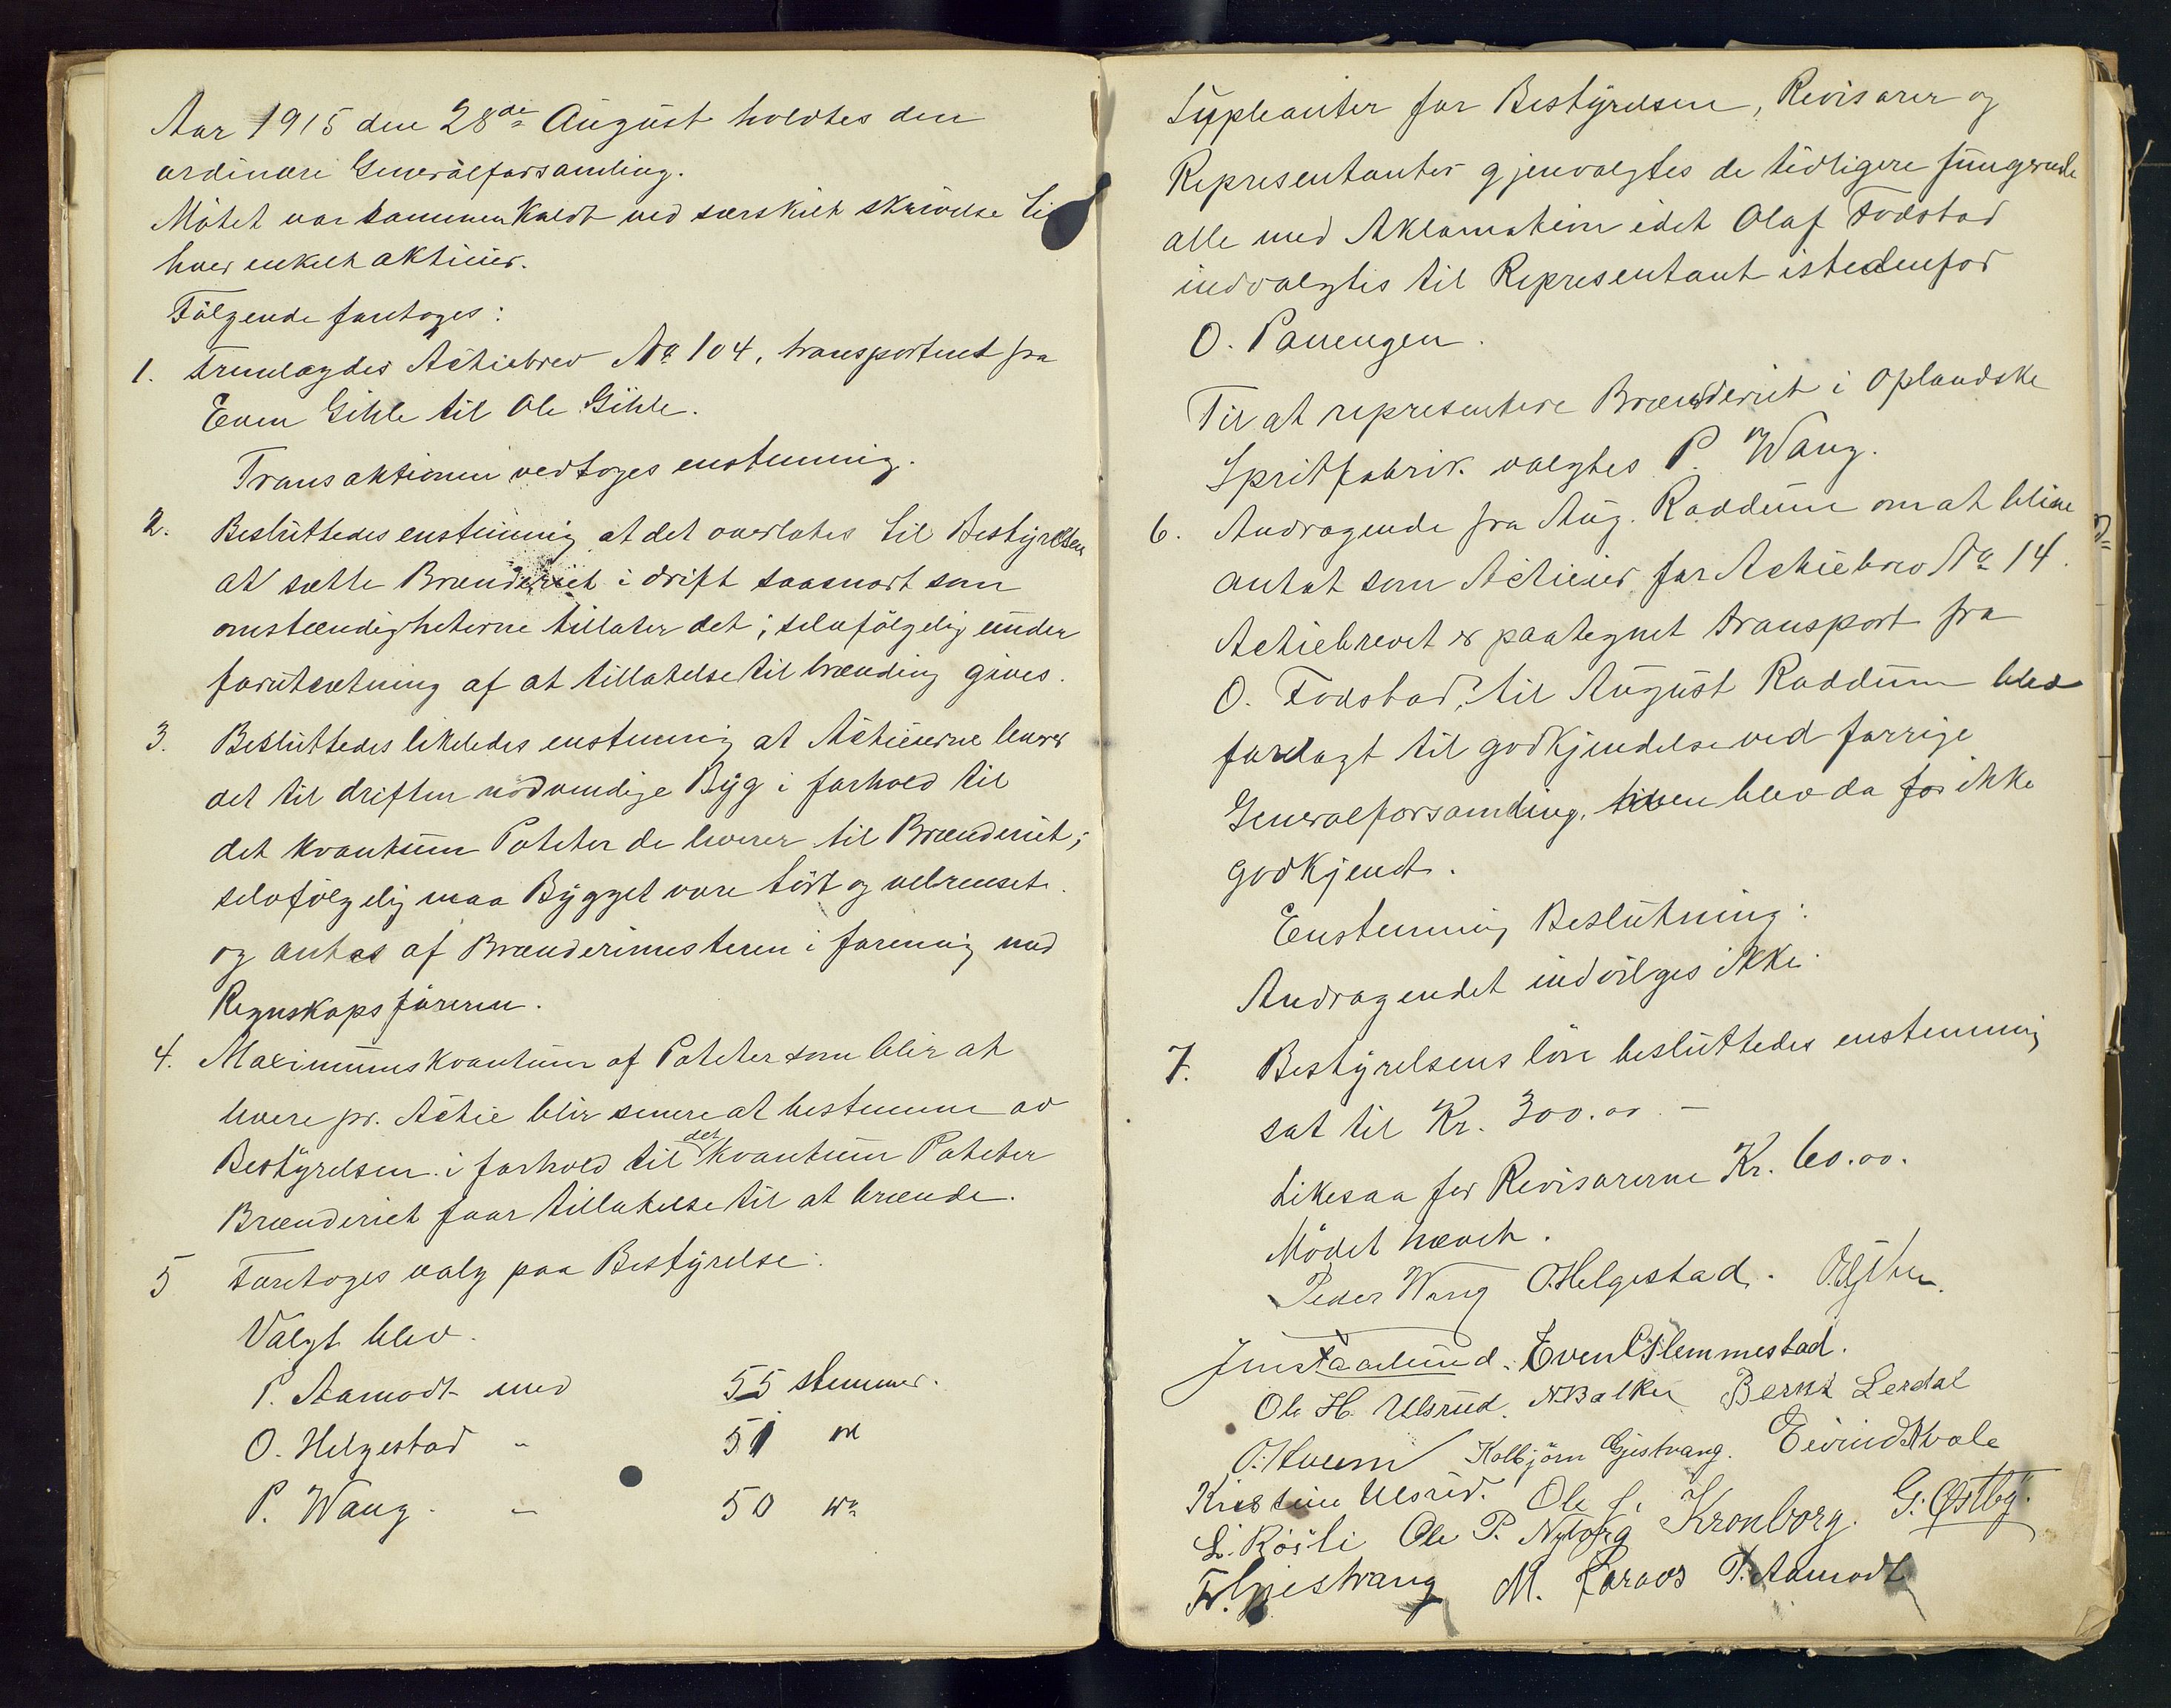 Aar 1915 den 28de August holdtes den
ordinære Generalforsamling.
Møtet var sammenkaldt ved særskilt skrivelse til
hver enkelt aktieier.
Følgende foretoges:
1. Fremlagdes Actiebrev No 104, transporteret fra
Even Gihle til Ole Gihle.
Transaktionen vedtoges enstemmig.
2. Besluttedes enstemmig at det overlates til Bestyrelsen
at sætte Brænderiet i drift saasnart som
omstændigheterne tillater det; selvfølgelig under
forutsætning af at tillatelse til brænding gives.
3. Besluttedes likeledes enstemmig at Actieierne leverer
det til driften nødvendige Byg i forhold til
det kvantum Poteter de leverer til Brænderiet;
selvfølgelig maa Bygget være tørt og velrenset
og antas af Brænderimesteren i forening med
Regnskapsføreren.
4. Maximumskvantum af Poteter som blir at
levere pr. Actie blir senere at bestemme av
Bestyrelsen i forhold til det kvantum Poteter
Brænderiet faar tillatelse til at brænde.
5 Foretoges valg paa Bestyrelse:
Valgt blev.
P. Aamodt med 55 stemmer.
O. Helgestad " 51
P. Wang. " 50
Supleanter for Bestyrelsen, Revisorer og
Representanter gjenvalgtes de tidligere fungerende
alle med Aklamation idet Olaf Fodstad
indvalgtes til Representant istedenfor
O. Panengen.
Til at representere Brænderiet i Oplandske
Spritfabrik valgtes P. Wang.
6. Andragende fra Aug. Raddum om at blive
antat som Actieier for Actiebrev No 14.
Actiebrevet er paategnet transport fra
O. Fodstad, til August Raddum blev
forelagt til godkjendelse ved forrige
Generalforsamling, blev da ikke
godkjendt.
Enstemmig Beslutning:
Andragendet indvilges ikke.
7. Bestyrelsens løn besluttedes enstemmig
sat til Kr. 300.00 –
Likesaa for Revisorerne Kr. 60.00.
Mødet hævet.
Peder Wang O. Helgestad.
Even O. Slemmestad.
Ole H. Ulsrud. N. Balke Bernt Lerdal
Kolbjørn Gjestvang. Eivind Kvale
Kristian Ulsrud. Ole J. Kronborg. G. Østby.
L. Røisli Ole P. Nyborg
Fr. Gjestvang M. P. Aamodt